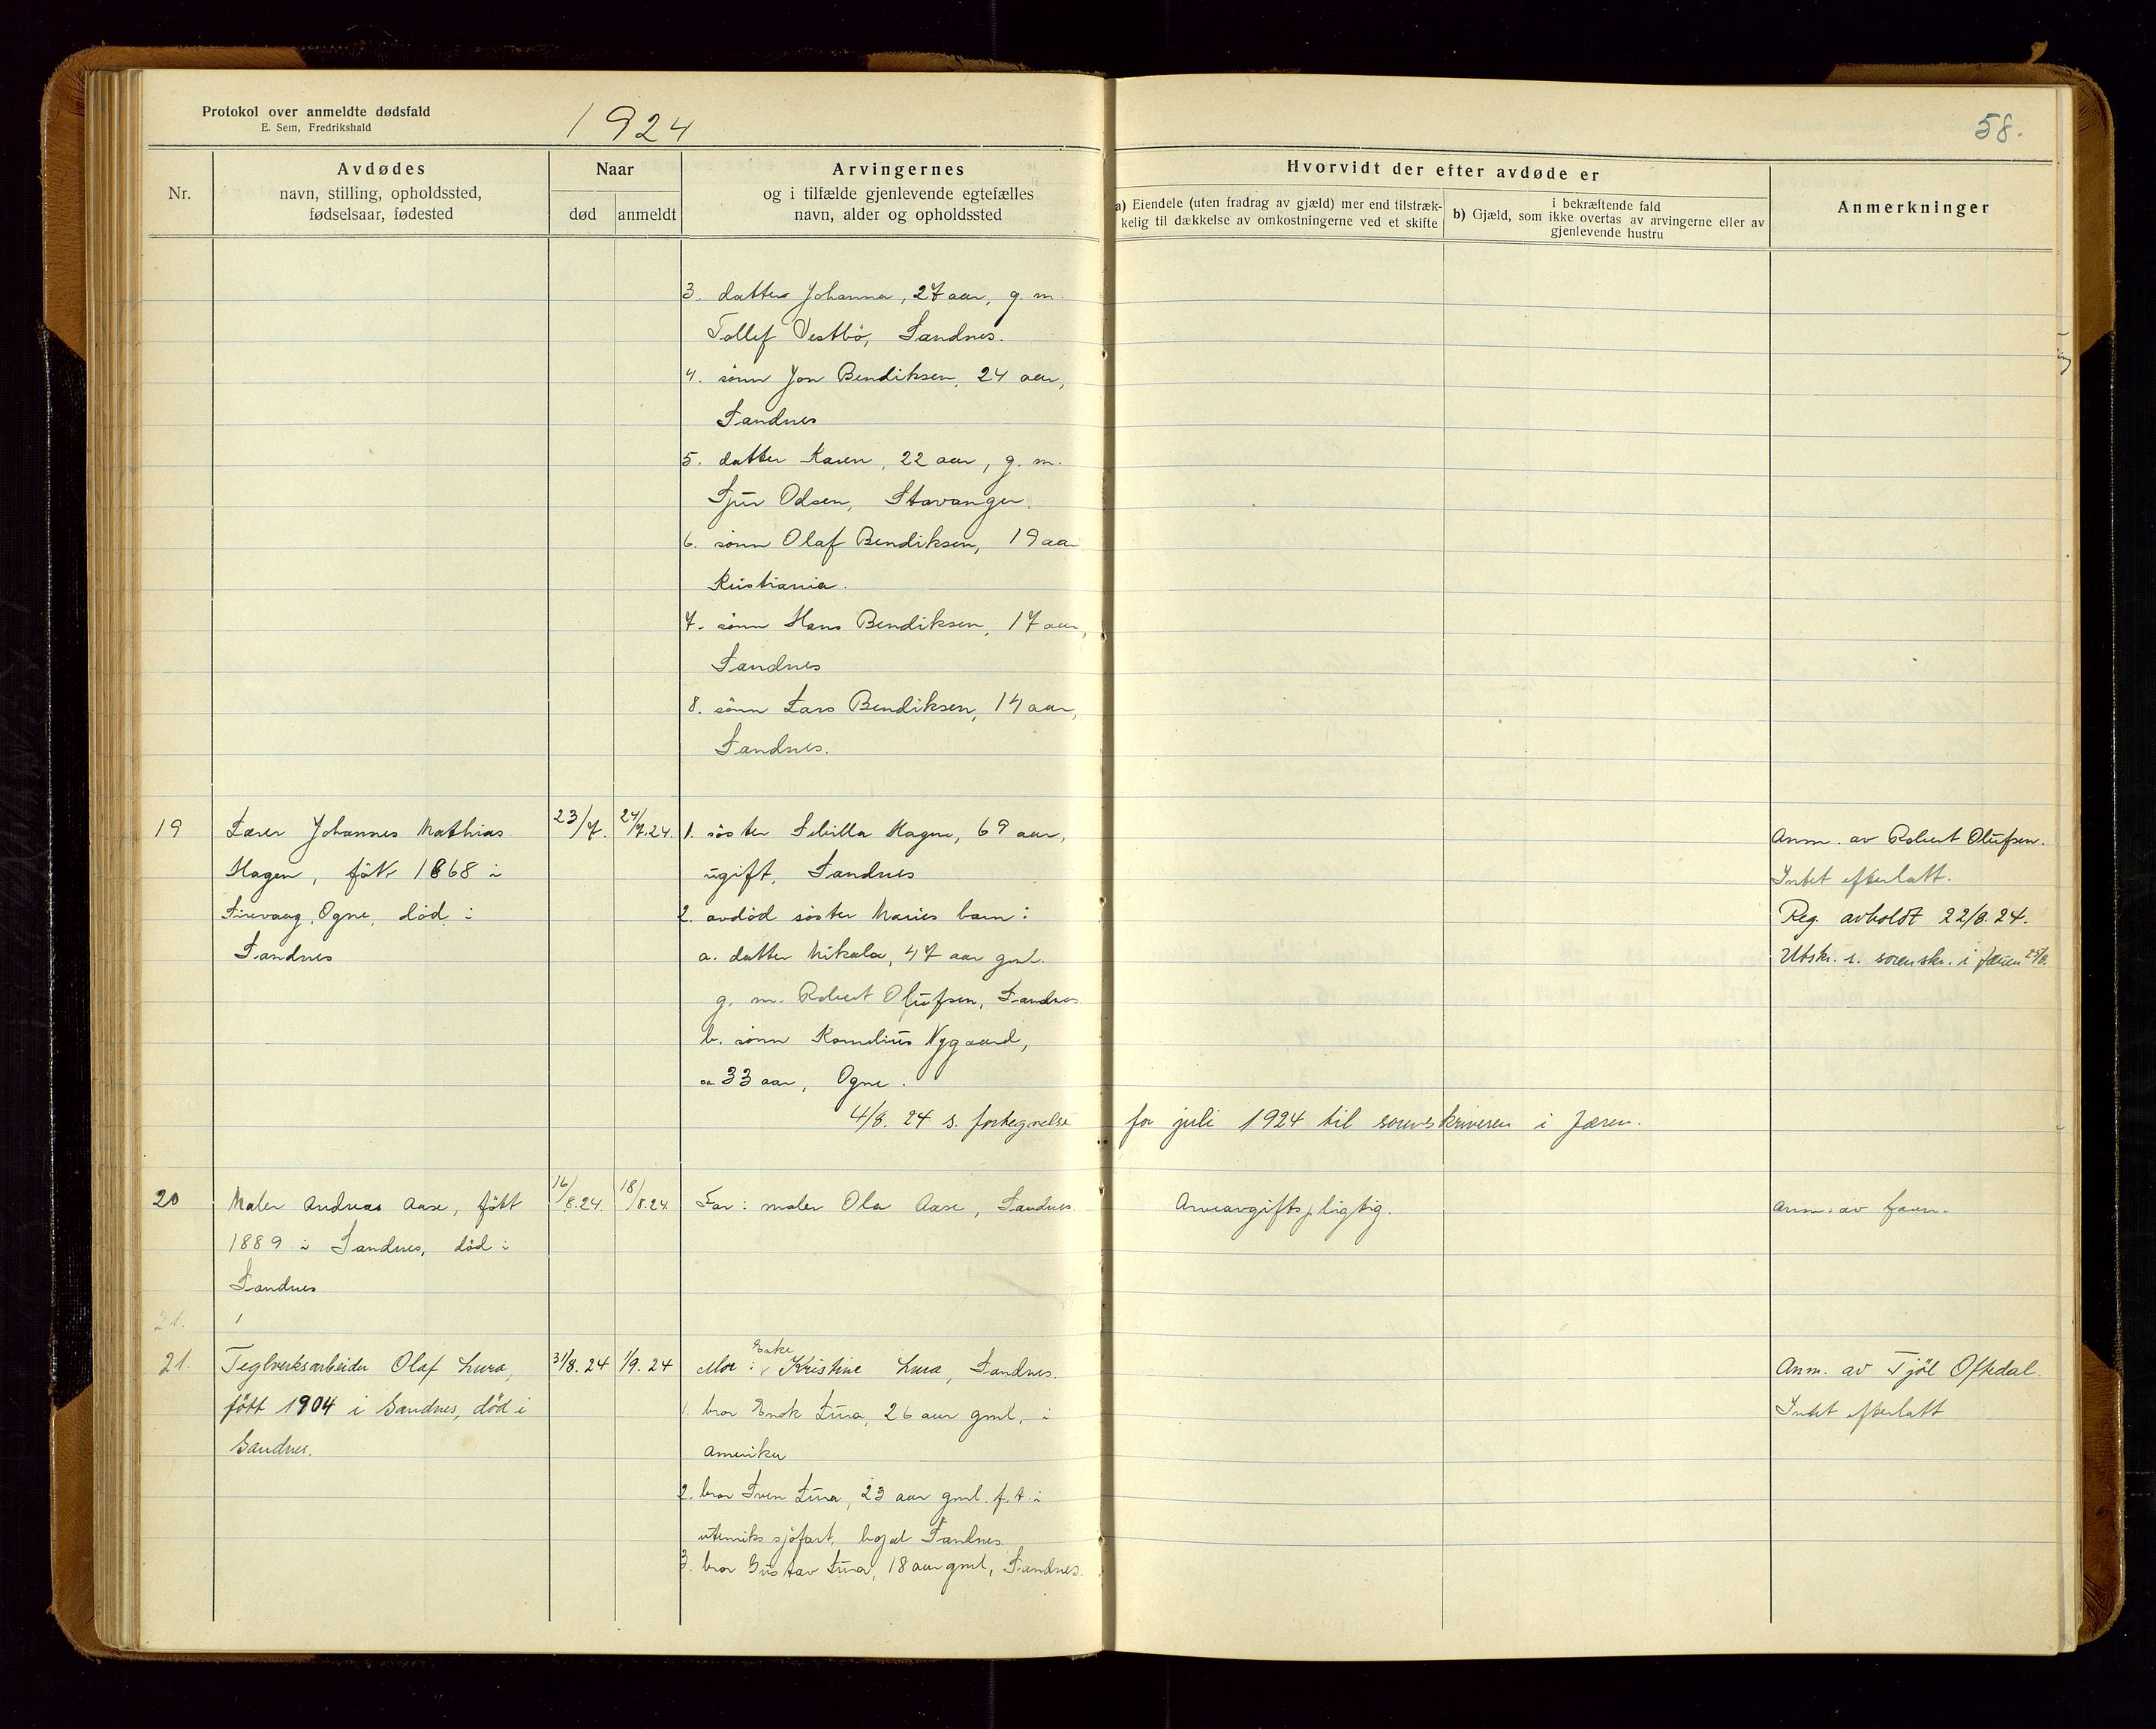 Protokol over anmeldte dødsfald
E. Sem, Fredrikshald
1924
58.
Nr.
Avdødes
navn, stilling, opholdssted,
fødselsaar, fødested
Naar
død
anmeldt
Arvingernes
og i tilfælde gjenlevende egtefælles
navn, alder og opholdssted
Hvorvidt der efter avdøde er
a) Eiendele (uten fradrag av gjæld) mer end tilstræk-
kelig til dækkelse av omkostningerne ved et skifte
i bekræftende fald
b) Gjæld, som ikke overtas av arvingerne eller av
gjenlevende hustru
Anmerkninger
3. datter Johanna, 27 aar, g. m.
Tollef Vestbö, Sandnes.
4. sönn Jon Bendiksen, 24 aar,
Sandnes
5. datter Karen, 22 aar, g. m.
Sjur Odsen, Stavanger.
6. sönn Olaf Bendiksen, 19 aar
Kristiania.
7. sönn Hans Bendiksen, 17 aar,
Sandnes
8. sönn Lars Bendiksen, 14 aar,
Sandnes.
19
Lærer Johannes Mathias
Hagen, født 1868 i
Sirevaag, Ogne, död i
Sandnes
23/7.
24/7.24.
1. söster Sibilla Hagne, 69 aar,
ugift, Sandnes
2. avdöd söster Maries barn:
a. datter Nikala, 47 aar gml.
g. m. Robert Olufsen, Sandnes
b. sönn Kornelius Nygaard,
ca. 33 aar, Ogne.
Anm. av Robert Olufsen.
Intet efterlatt.
Reg. avholdt 22/8. 24.
Utskr. s. sorenskr. i Jæren 25/8.
4/8. 24 s. fortegnelse for juli 1924 til sorenskriveren i Jæren.
20
Maler Andreas Aase, født
1889 i Sandnes, död i
Sandnes
16/8.24.
18/8.24.
Far: maler Ola Aase, Sandnes.
Arveavgiftspligtig.
Anm. av faren.
21.
21.
Teglverksarbeider Olaf Lura,
födt 1904 i Sandnes, död i
Sandnes.
31/8. 24
1/9. 24
Enke
Mor: Kristine Lura, Sandnes.
1. bror Enok Lura, 26 aar gml, i
Amerika
2. bror Sven Lura, 23 aar gml. f. t. i
utenriks sjöfart, bopæl Sandnes.
3. bror Gustav Lura, 18 aar gml, Sandnes.
Anm. av Tjöl Oftedal.
Intet efterlatt